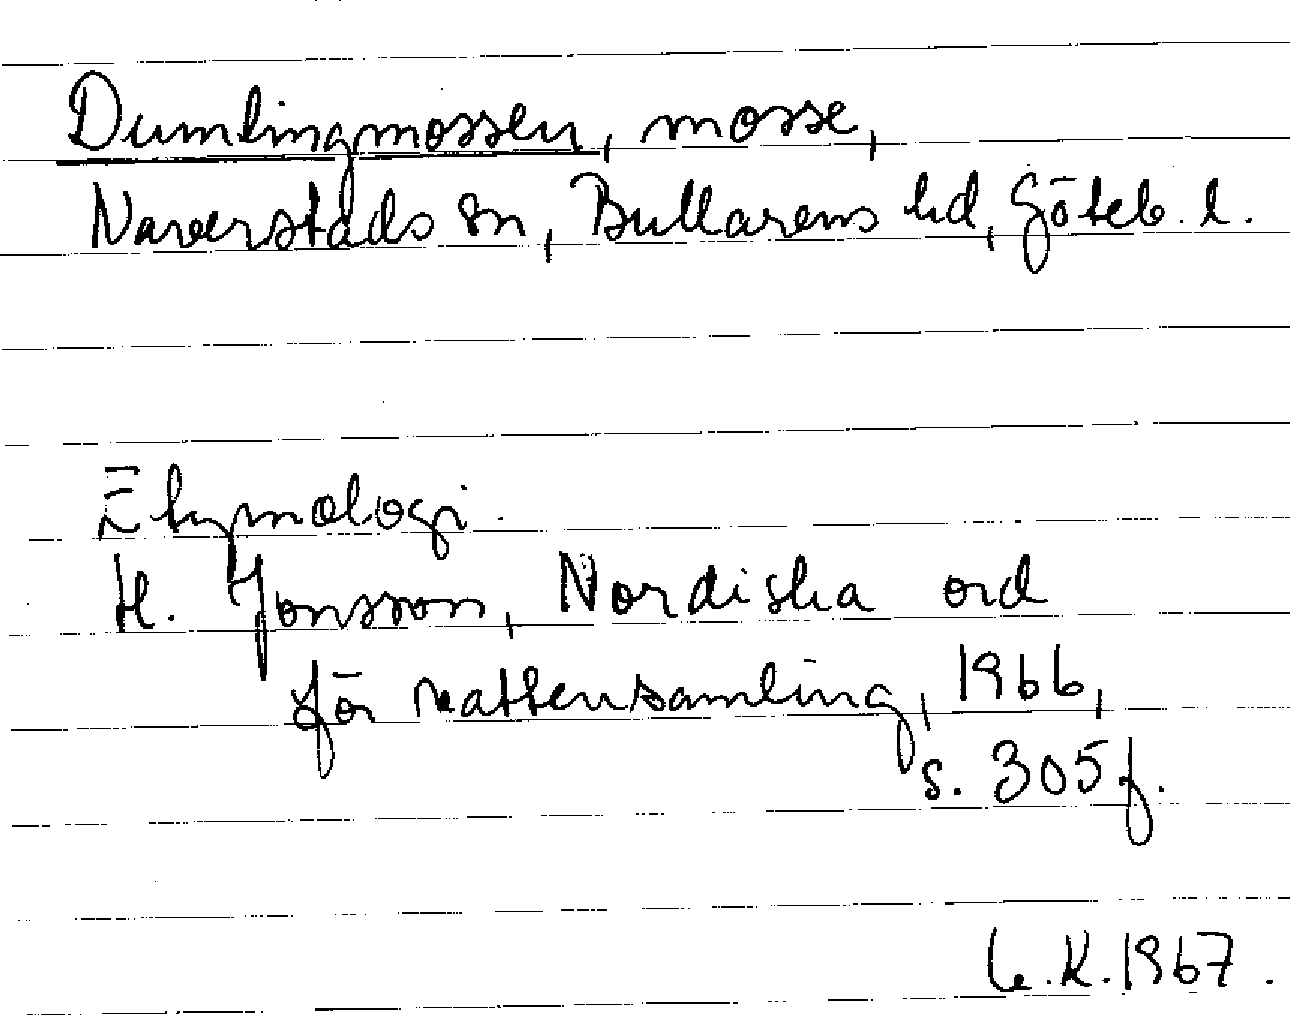 Dumlingmossen, mosse,
Naverstads sn, Bullarens hd, Göteb. l.
Etymologi.
H. Jonsson, Nordiska ord
för vattensamling, 1966,
s. 305 f.
K. 1967.